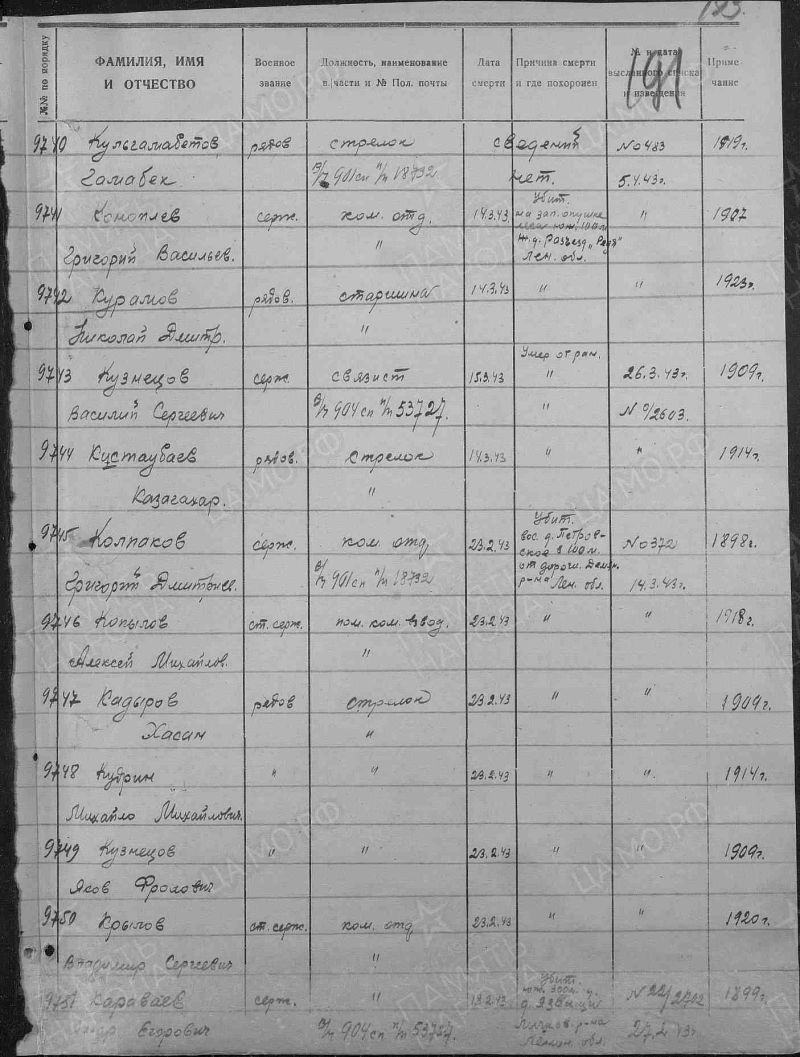 193.
191
№№ по порядку
ФАМИЛИЯ, ИМЯ И ОТЧЕСТВО
Военное звание
Должность, наименование в. части и № Пол. почты
Дата смерти
Причина смерти и где похоронен
№ и дата высланного списка и извещения
Примечание
9740 Кульгамабетов рядов стрелок сведений No 483 1919г.
Гамабек в/ч 901 сп п/п 18732 нет. 5.4.43г.
Убит.
9741 Коноплев серж. ком. отд. 14.3.43 на зап. опушке " 1907
леса юж. 100 м
Григорий Васильев. " ж.д. Разъезд „
Лен. обл.
9742 Курамов рядов. старшина 14.3.43 " " 1923г.
Николай Дмитр. "
Умер от ран.
9743 Кузнецов серж. связист 15.3.43 " 26.3.43г. 1909г.
Василий Сергеевич в/ч 904 сп п/п 53727. " N 0/2603.
9744 Кистаубаев рядов. стрелок 14.3.43 " " 1914г.
Казагахар. "
Убит.
9745 Колпаков серж. ком. отд 23.2.43 вос. д. Петровское в 100 м. No 372 1898г.
от дороги.
Григорий Дмитриев. в/ч 901 сп п/п 18732 р-на Лен. обл. 14.3.43г.
9746 Копылов ст. серж. пом. ком. взвод. 23.2.43 " " 1918г.
Алексей Михайлов. "
9747 Кадыров рядов стрелок 23.2.43 " " 1909г.
Хасан "
9748 Кудрин " " 23.2.43 " " 1914г.
Михайло Михайлович "
9749 Кузнецов " " 23.2.43 " " 1909г.
Яков Фролович
9750 Крылов ст. серж. ком. отд 23.2.43 " " 1920г.
Владимир Сергеевич "
Убит.
9751 Караваев серж. " юж. 300 м. N 22/2702 1899г.
д. Язвищи
Егорович в/ч 904 сп п/п 53727. р-на
Ленин. обл.